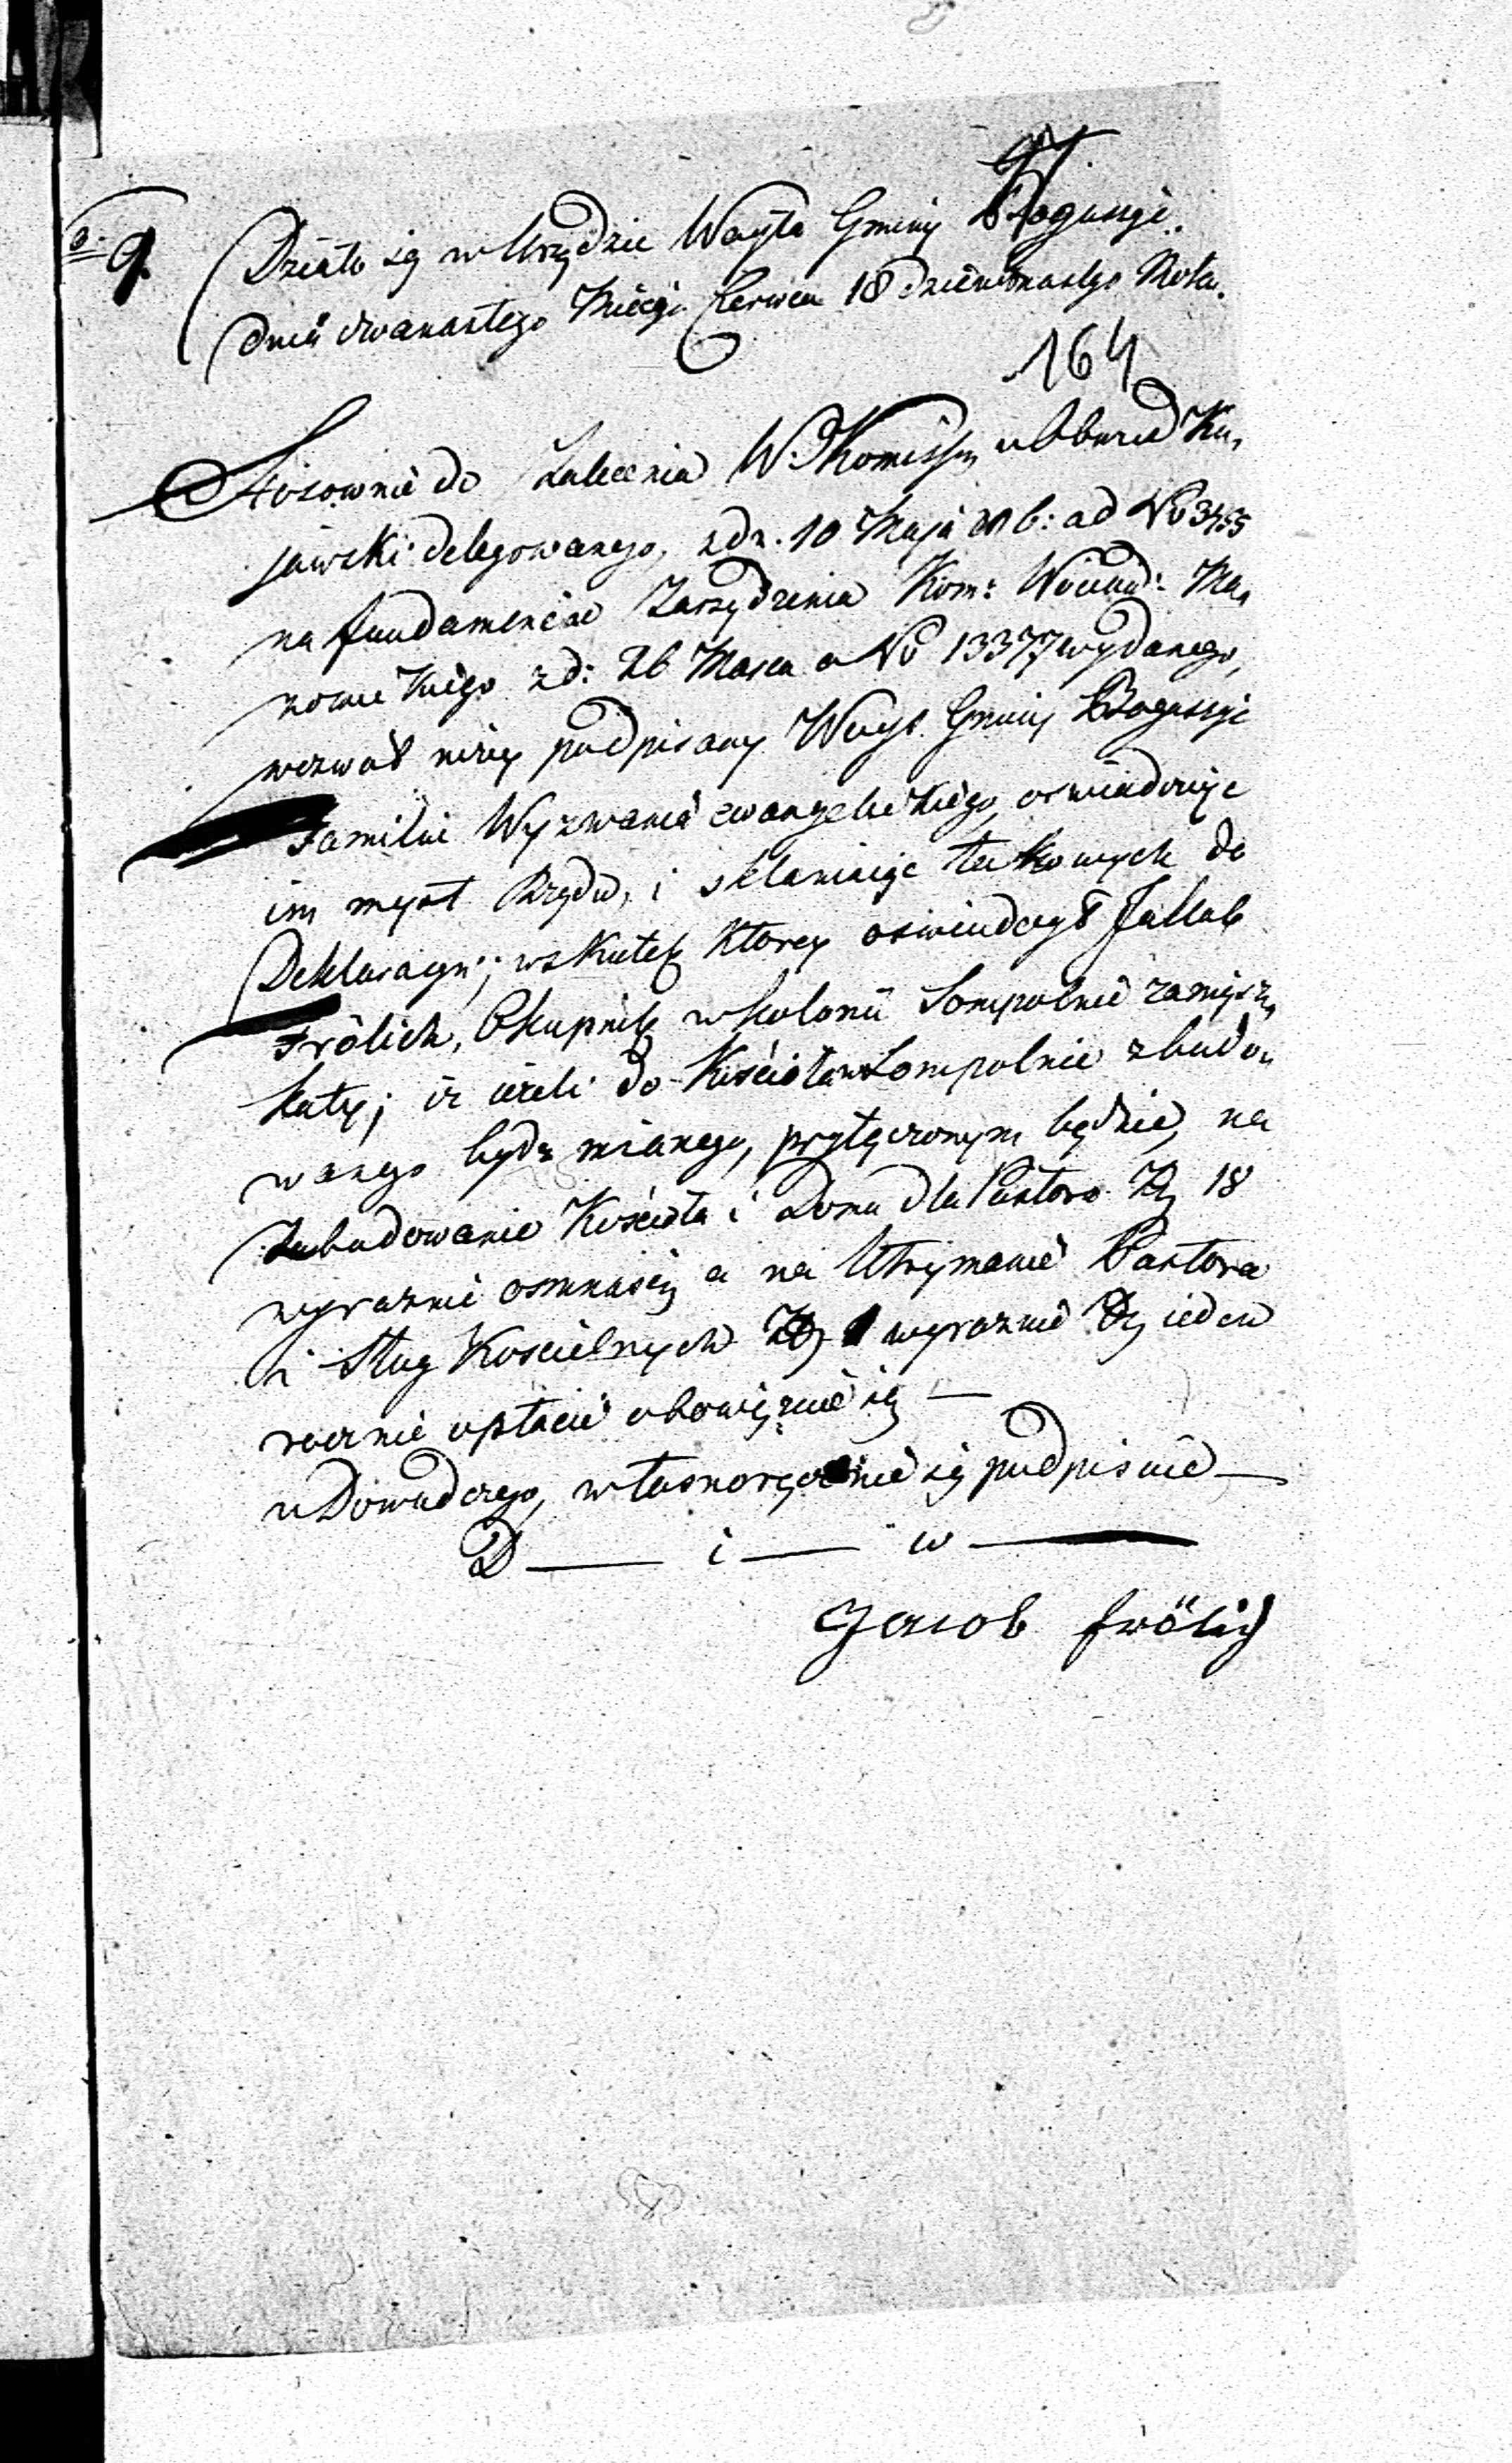 9. Działo się w Urzędzie Woyta Gminy Boguszyc
dnia dwanastego Miesią. Czerwca 18 dziewiętnastego Roku.
164
Stosownie do Zalecenia W. Kommissyi w Obwod Ku,
jawski delegowanego, z dn. 10 Maja m b: ad No 3455
na fundamencie Zarządzenia Kom: Woiewd: Ma,
zowieckiego z d: 26 Marca a No 13377 wydanego,
wezwał niżey podpisany Woyt Gminy Boguszyc
Familie Wyznania ewangelickiego, oswiadczyc
im mysł Rządu, i skłaniaiąc takowych do
Deklaracyi; wskutek ktorey oswiadczył Jakub
Frölich, Okupnik w kolonii Sompolnie zamiesz,
kały; iż ieżeli do Kościoła w Sompolnie zbudo,
wanego bydź mianego, przyłączonym będzie, na
Zabudowanie Kościoła i Domu dla Pastora Zł 18
wyraznie osmnaście a na Utrzymanie Pastora
i Sług Koscielnych Zł 1 wyraznie Zł ieden
rocznie opłacić obowiązuie się —
w Dowod czego, własnoręcznie się podpisuie —
D — i — w —
Jacob Frölich